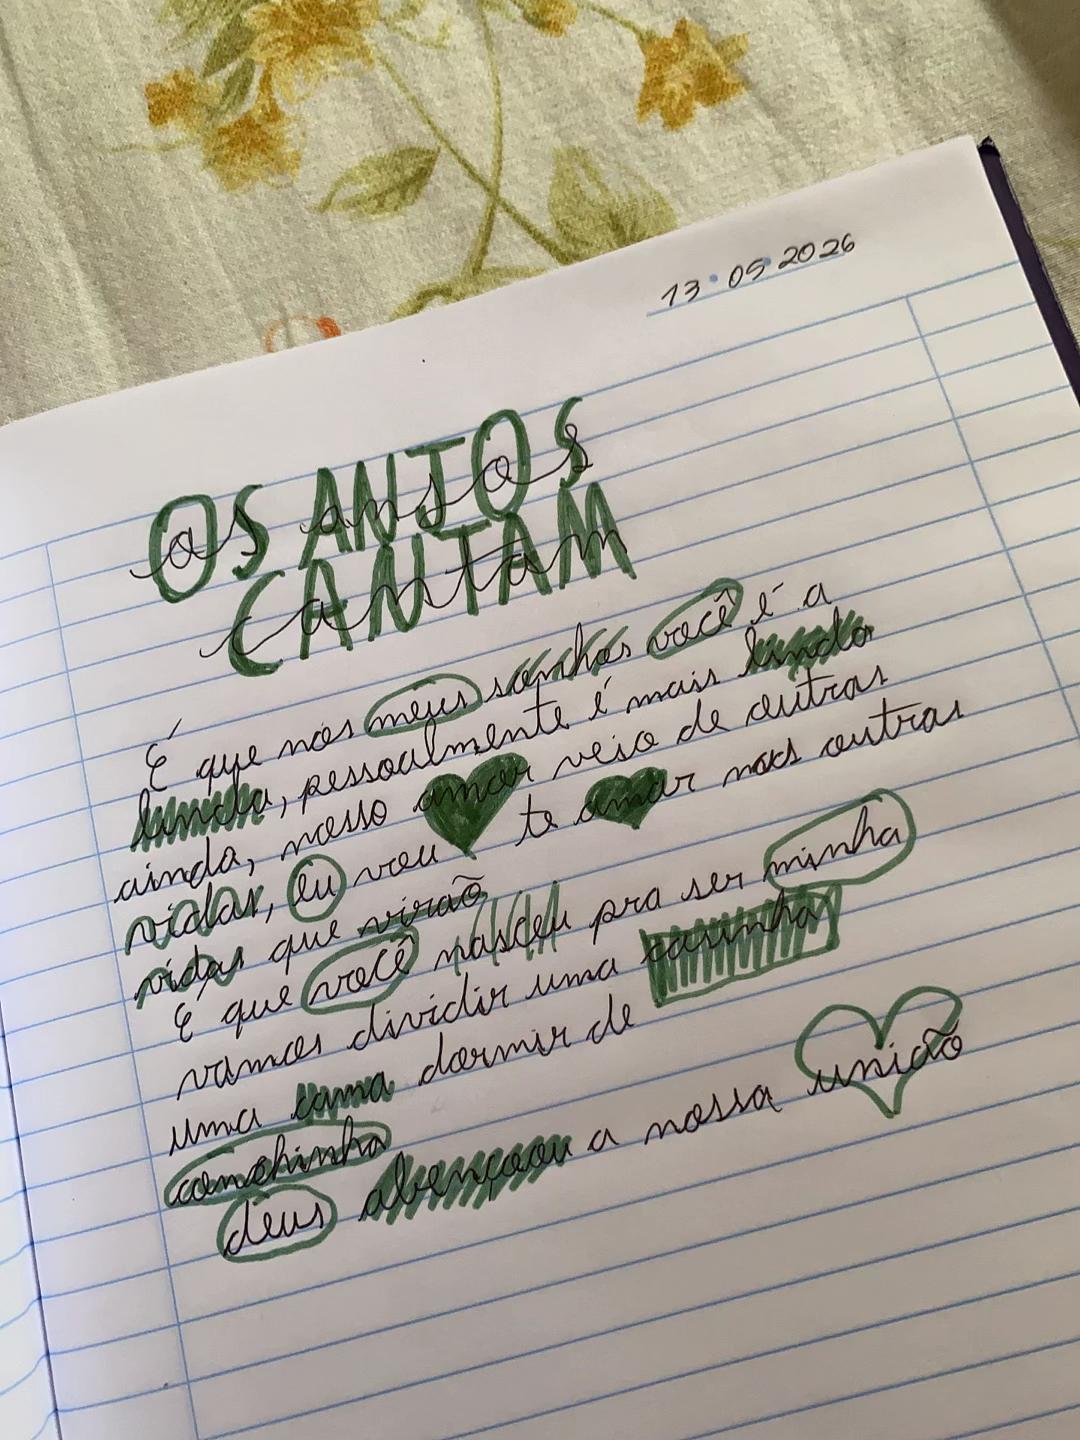 13.05.2026
OS ANJOS
os anjos
CANTAM
cantam
É que nos meus sonhos você é a
linda, pessoalmente é mais linda
ainda, nosso amor veio de outras
vidas, eu vou te amar nas outras
vidas que virão
É que você nasceu pra ser minha
vamos dividir uma casinha
uma cama dormir de
conchinha
deus abençoou a nossa união